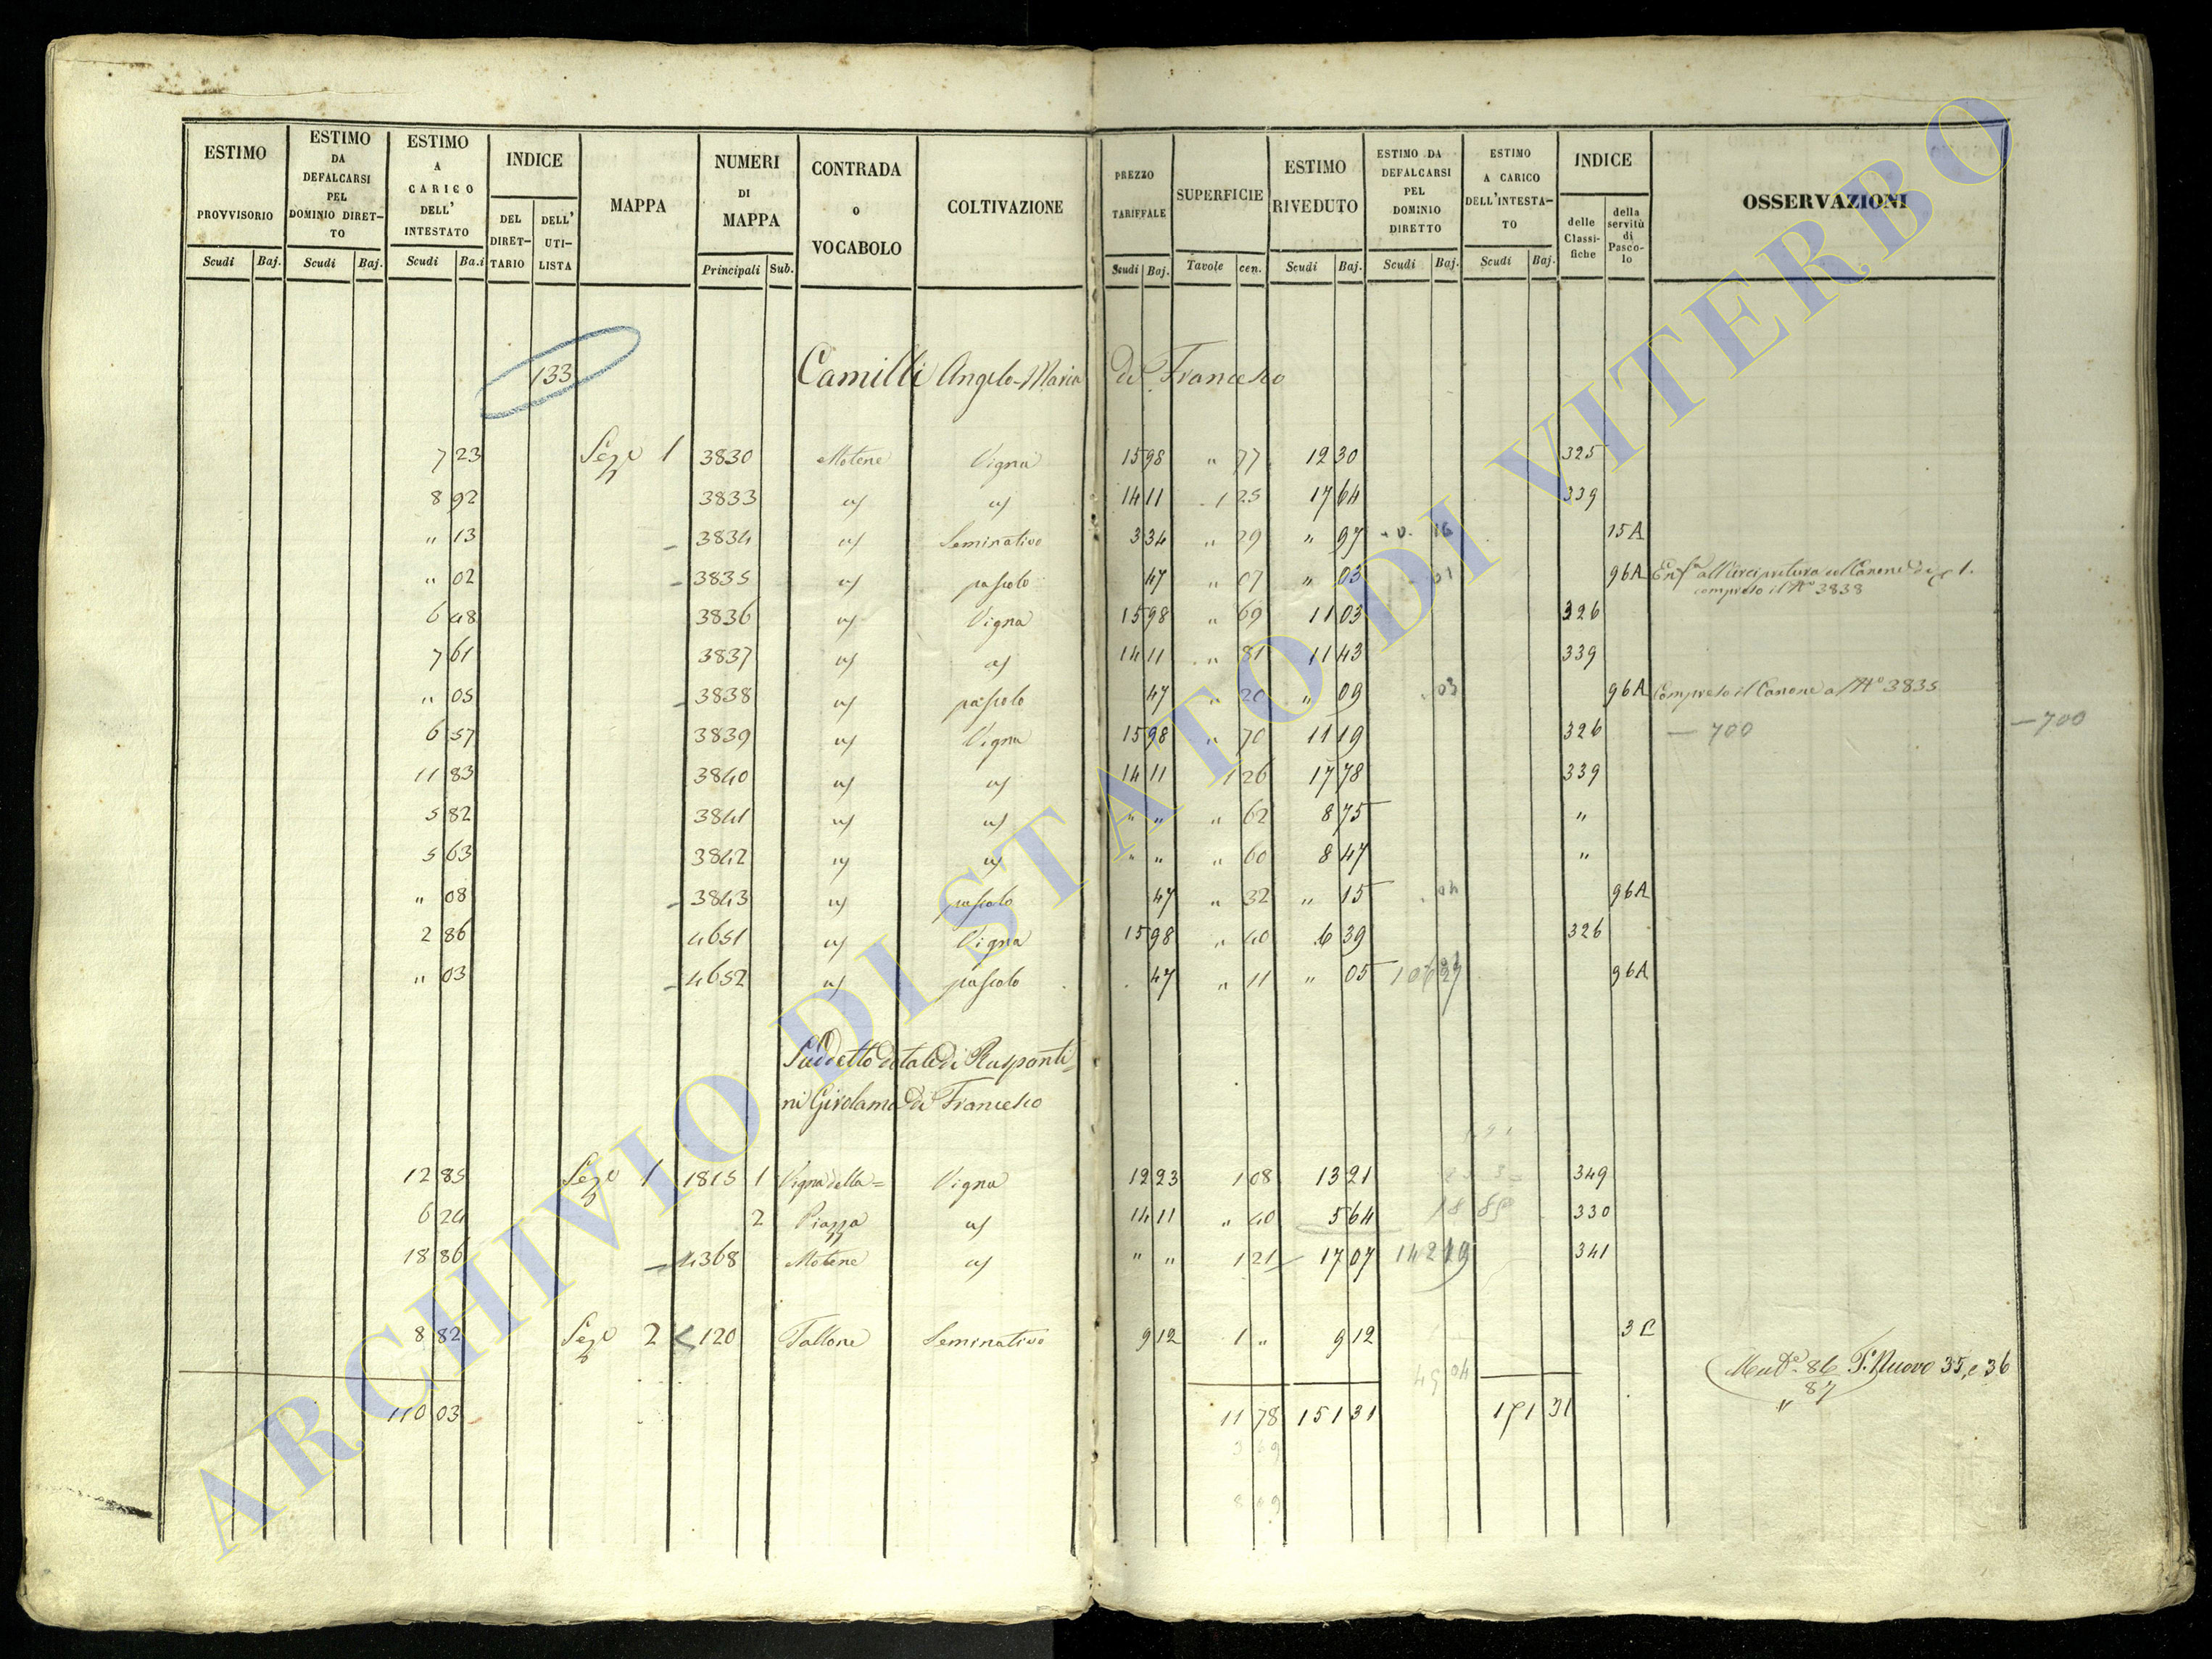 ESTIMO PROVVISORIO Scudi Baj.
ESTIMO DA DEFALCARSI PEL DOMINIO DIRET-TO Scudi Baj.
ESTIMO A CARICO DELL' INTESTATO Scudi Ba.i
INDICE DEL DIRET-TARIO DELL' UTI-LISTA
MAPPA
NUMERI DI MAPPA Principali Sub.
CONTRADA o VOCABOLO
COLTIVAZIONE
PREZZO TARIFFALE Scudi Baj.
SUPERFICIE Tavole cen.
ESTIMO RIVEDUTO Scudi Baj.
ESTIMO DA DEFALCARSI PEL DOMINIO DIRETTO Scudi Baj.
ESTIMO A CARICO DELL'INTESTA-TO Scudi Baj.
INDICE delle Classi-fiche della servitù di Pasco-lo
OSSERVAZIONI
133 Camilli Angelo-Maria di Francesco
7 23 Sez.e 1 3830 Motene Vigna 15 98 " 77 12 30 325
8 92 3833 a/ a/ 14 11 1 25 17 64 339
" 13 3834 a/ Seminativo 3 34 " 29 " 97 16 15A
" 02 3835 a/ pascolo 47 " 07 " 03 01 96A Enf.a all'arcipretura col Canone di 1.
compreso il N° 3838
6 48 3836 a/ Vigna 15 98 " 69 11 03 326
7 61 3837 a/ a/ 14 11 " 81 11 43 339
" 05 3838 a/ pascolo 47 " 20 " 09 03 96A Compreso il Canone a/ N° 3835
6 57 3839 a/ Vigna 15 98 " 70 11 19 326 — 700 — 700
11 83 3840 a/ a/ 14 11 1 26 17 78 339
5 82 3841 a/ a/ " " " 62 8 75 "
5 63 3842 a/ a/ " " " 60 8 47 "
" 08 3843 a/ pascolo 47 " 32 " 15 04 96A
2 86 4651 a/ Vigna 15 98 " 40 6 39 326
" 03 4652 a/ pascolo 47 " 11 " 05 96A
Suddetto dotale di Rasponti=
ni Girolama di Francesco
12 85 Sez.e 1 1815 1 Vigna della= Vigna 12 23 1 08 13 21 349
6 24 2 Piazza a/ 14 11 " 40 5 64 18 85 330
18 86 4368 Motene a/ " " 1 21 17 07 142 19 341
8 82 Sez.e 2 120 Fallone Seminativo 9 12 1 " 9 12 3
49 04 Mut.e 86 P. Nuovo 35, e 36
" 87
110 03 11 78 151 31 151 31
ARCHIVIO DI STATO DI VITERBO